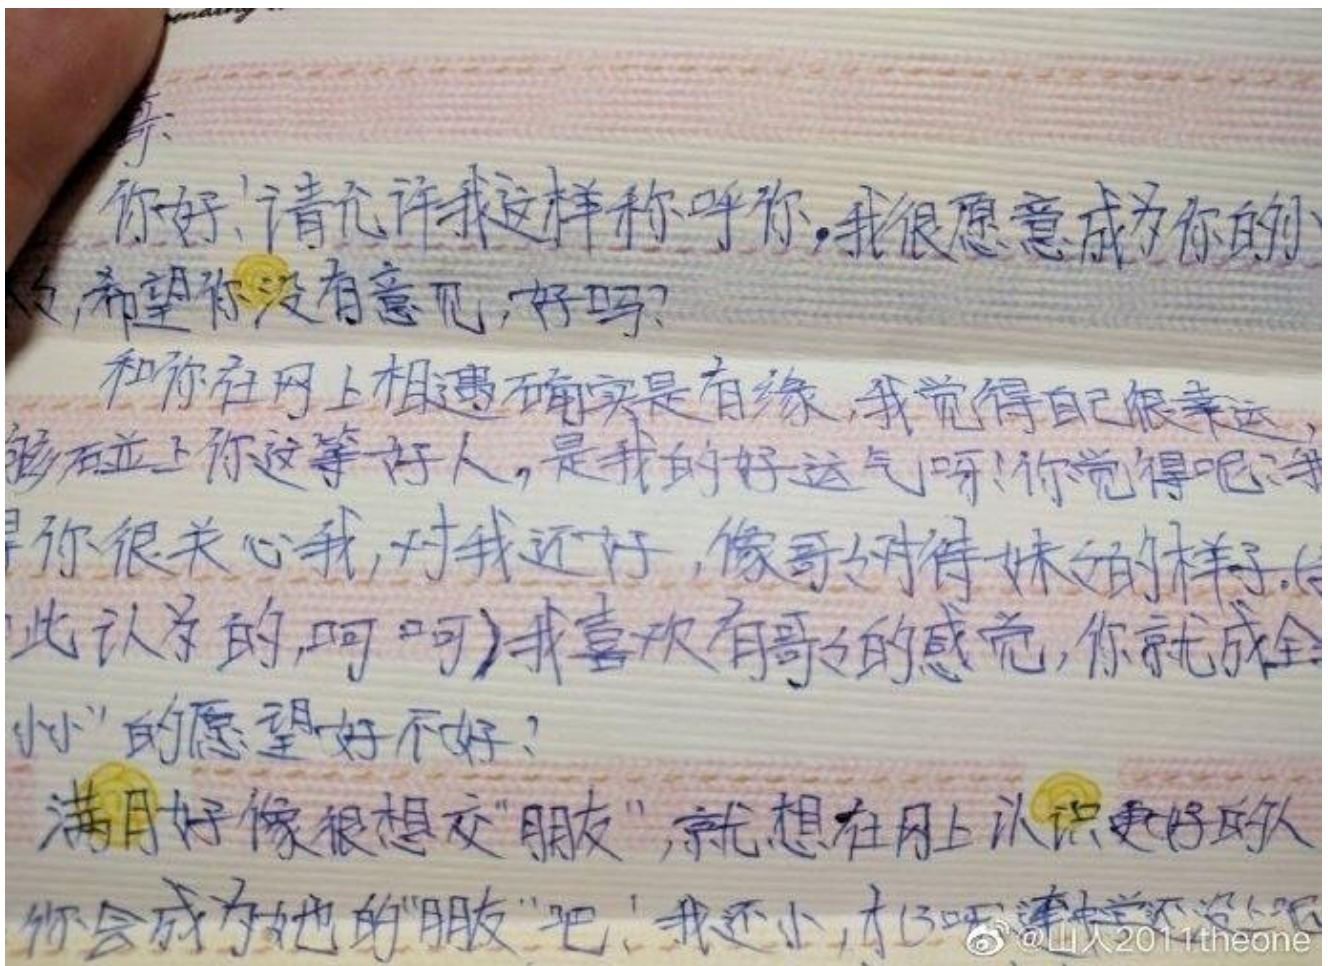 哥:
你好!请允许我这样称呼你,我很愿意成为你的小
々,希望你没有意见,好吗?
和你在网上相遇确实是有缘,我觉得自己很幸运,
能碰上你这等好人,是我的好运气呀!你觉得呢?我
得你很关心我,对我还好,像哥々对待妹々的样子.(
此认为的,呵呵)我喜欢有哥々的感觉,你就成全
小小"的愿望好不好?
满月好像很想交"朋友",就想在网上认识更好的人
你会成为她的"朋友"吧!我还小,才13呀,连中学还没上呢
@山人2011theone